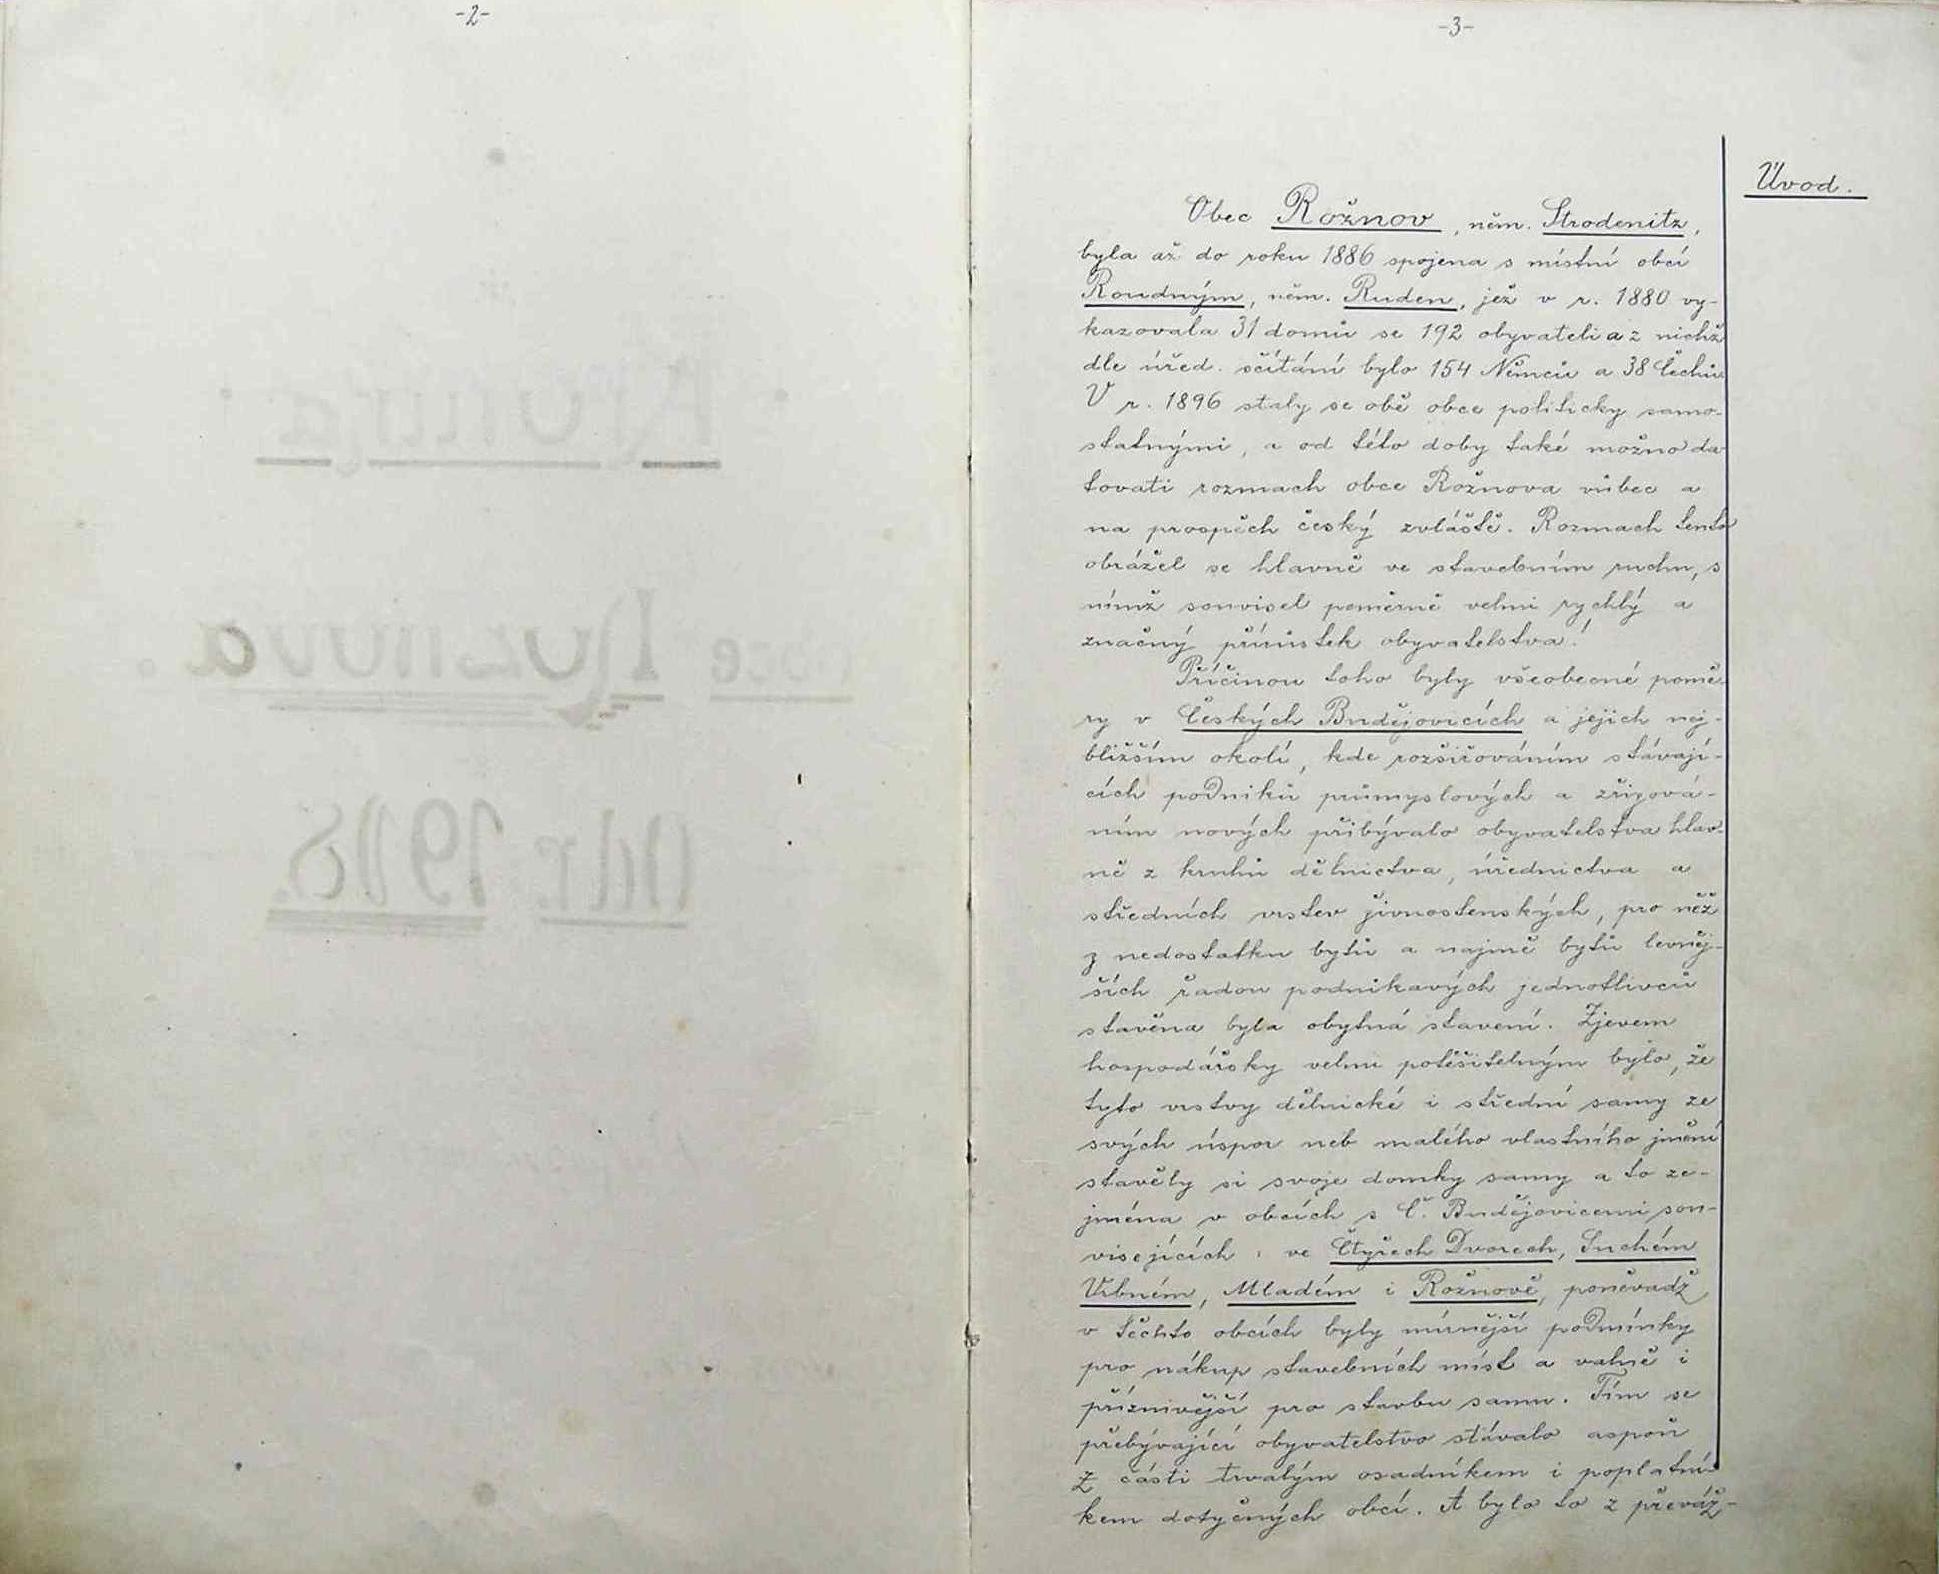 -2-
-3-
Úvod.
Obec Rožnov, něm. Strodenitz,
byla až do roku 1886 spojena s místní obcí
Roudným, něm. Ruden, jež v r. 1880 vy-
kazovala 31 domů se 192 obyvateli a z nichž
dle úřed. sčítání bylo 154 Němců a 38 Čechů.
V r. 1896 staly se obě obce politicky samo-
statnými, a od této doby také možno da-
tovati rozmach obce Rožnova vůbec a
na prospěch český zvláště. Rozmach tento
obrážel se hlavně ve stavebním ruchu, s
nímž souvisel poměrně velmi rychlý a
značný přírůstek obyvatelstva!
Příčinou toho byly všeobecné pomě-
ry v Českých Budějovicích a jejich nej-
bližším okolí, kde rozšiřováním stávají-
cích podniků průmyslových a zřizová-
ním nových přibývalo obyvatelstva hlav-
ně z kruhů dělnictva, úřednictva a
středních vrstev živnostenských, pro něž
z nedostatku bytů a najmě bytů levněj-
ších řadou podnikavých jednotlivců
stavěna byla obytná stavení. Zjevem
hospodářsky velmi potěšitelným bylo, že
tyto vrstvy dělnické i střední samy ze
svých úspor neb malého vlastního jmění
stavěly si svoje domky samy a to ze-
jména v obcích s Č. Budějovicemi sou-
visejících: ve Čtyřech Dvorech, Suchém
Vrbném, Mladém i Rožnově, poněvadž
v těchto obcích byly mírnější podmínky
pro nákup stavebních míst a valně i
příznivější pro stavbu samu. Tím se
přebývající obyvatelstvo stávalo aspoň
z části trvalým osadníkem i poplatní-
kem dotyčných obcí. A bylo to z převáž-